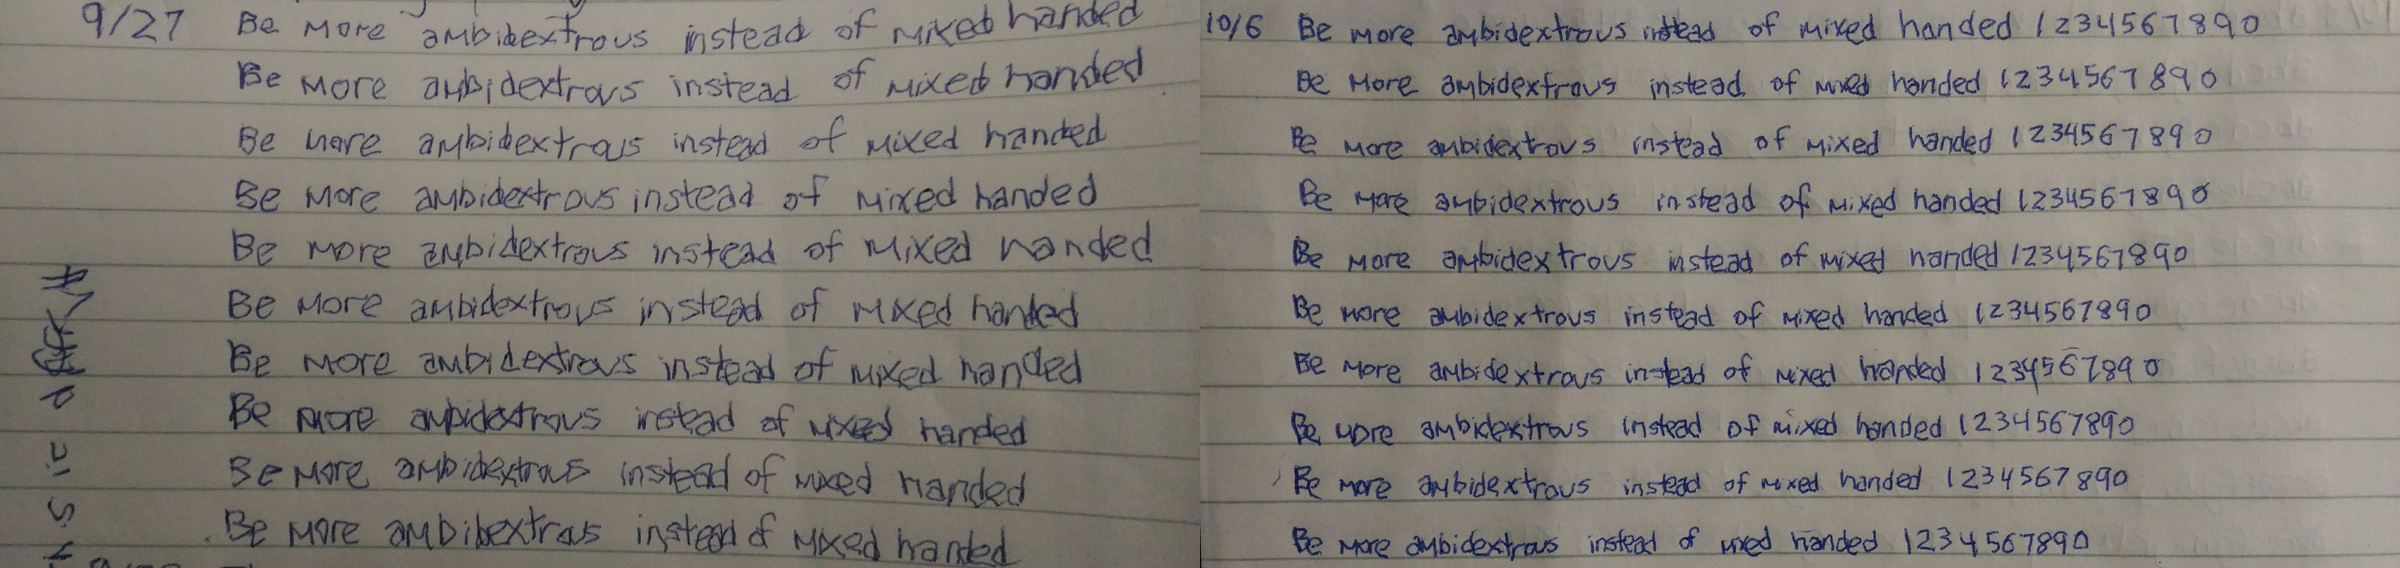 9/27 Be more ambidextrous instead of mixed handed
Be more ambidextrous instead of mixed handed
Be more ambidextrous instead of mixed handed
Be more ambidextrous instead of mixed handed
Be more ambidextrous instead of mixed handed
Be more ambidextrous instead of mixed handed
Be more ambidextrous instead of mixed handed
Be more ambidextrous instead of mixed handed
Be more ambidextrous instead of mixed handed
Be more ambibextrous instead of mixed handed
10/6 Be more ambidextrous instead of mixed handed 1234567890
Be more ambidextrous instead of mixed handed 1234567890
Be more ambidextrous instead of mixed handed 1234567890
Be more ambidextrous instead of mixed handed 1234567890
Be more ambidextrous instead of mixed handed 1234567890
Be more ambidextrous instead of mixed handed 1234567890
Be more ambidextrous instead of mixed handed 1234567890
Be more ambidextrous instead of mixed handed 1234567890
Be more ambidextrous instead of mixed handed 1234567890
Be more ambidextrous instead of mixed handed 1234567890